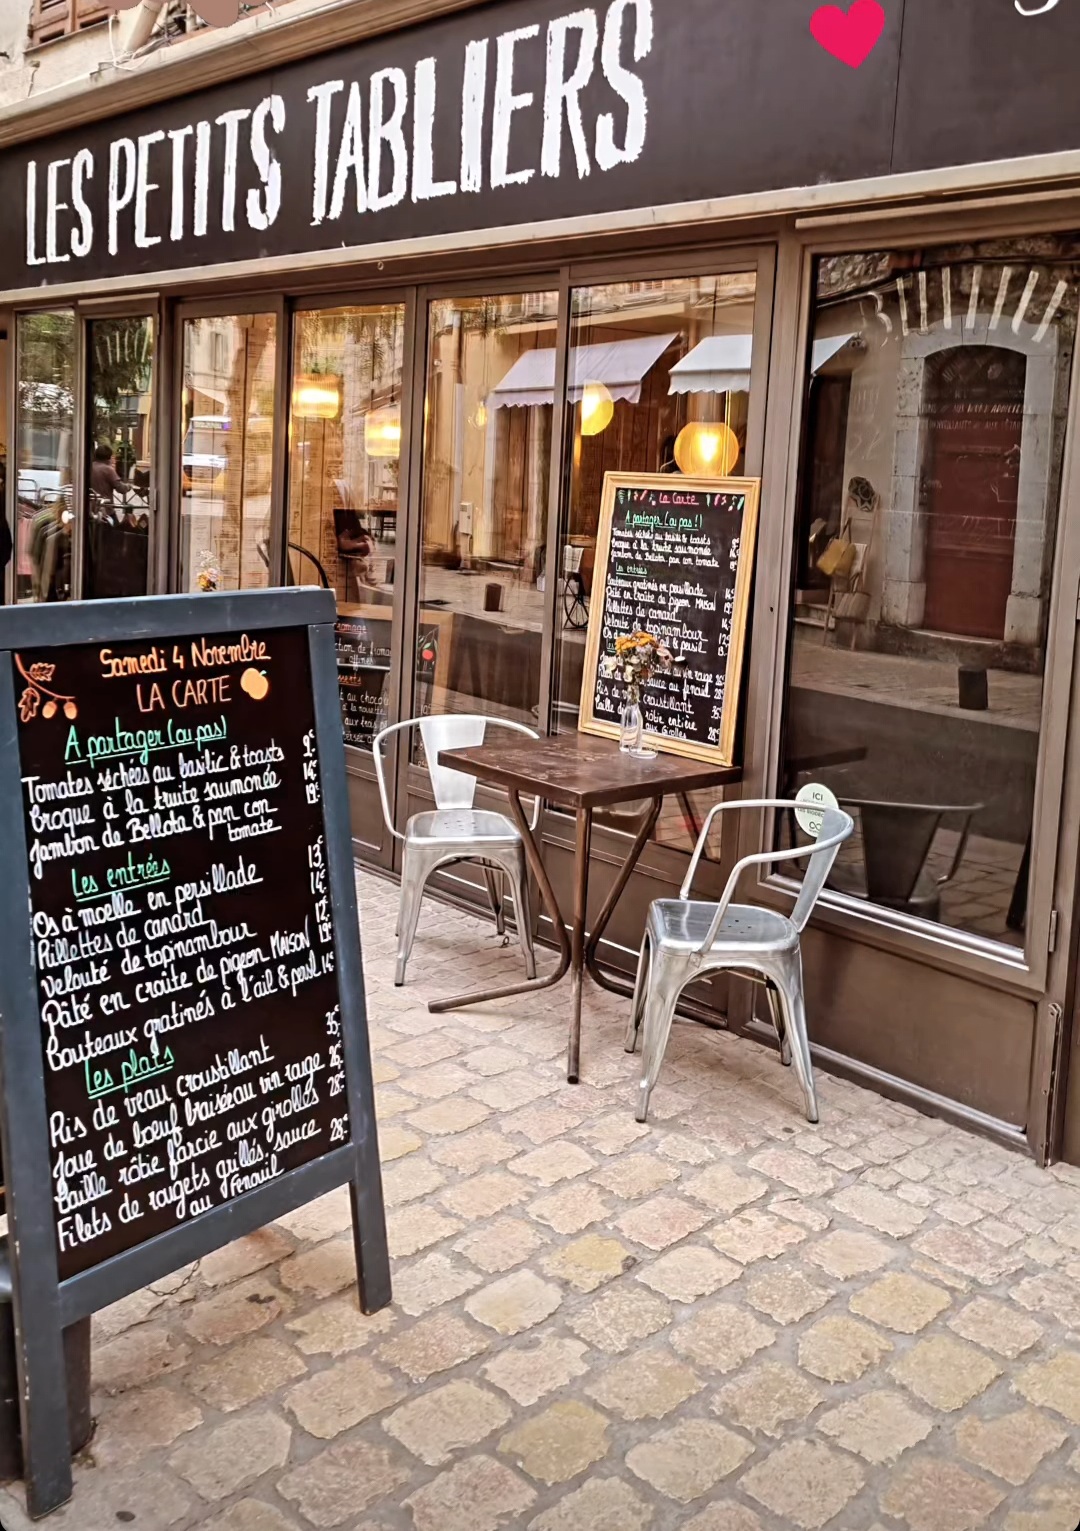 LES PETITS TABLIERS
Samedi 4 Novembre
LA CARTE
A partager (ou pas!)
Tomates séchées au basilic & toasts 9€
Croque à la truite saumonée 14€
Jambon de Bellota & pan con 19€
tomate
Les entrées
Os à moelle en persillade 13€
Rillettes de canard 14€
Velouté de topinambour 12€
Pâté en croûte de pigeon MAISON 19€
Couteaux gratinés à l'ail & persil 14€
Les plats
Ris de veau croustillant 35€
Joue de bœuf braisée au vin rouge 26€
Caille rôtie farcie aux girolles 28€
Filets de rougets grillés, sauce 28€
au Fenouil
La Carte
A partager (ou pas!)
Tomates séchées au basilic & toasts
Croque à la truite saumonée
Jambon de Bellota pan con tomate
Les entrées
Couteaux gratinés en persillade
Pâté en croûte de pigeon MAISON
Rillettes de canard
Velouté de topinambour
ail & persil
au vin rouge
sauce au fenouil
Ris de croustillant
Caille rôtie entière
aux Girolles
ICI